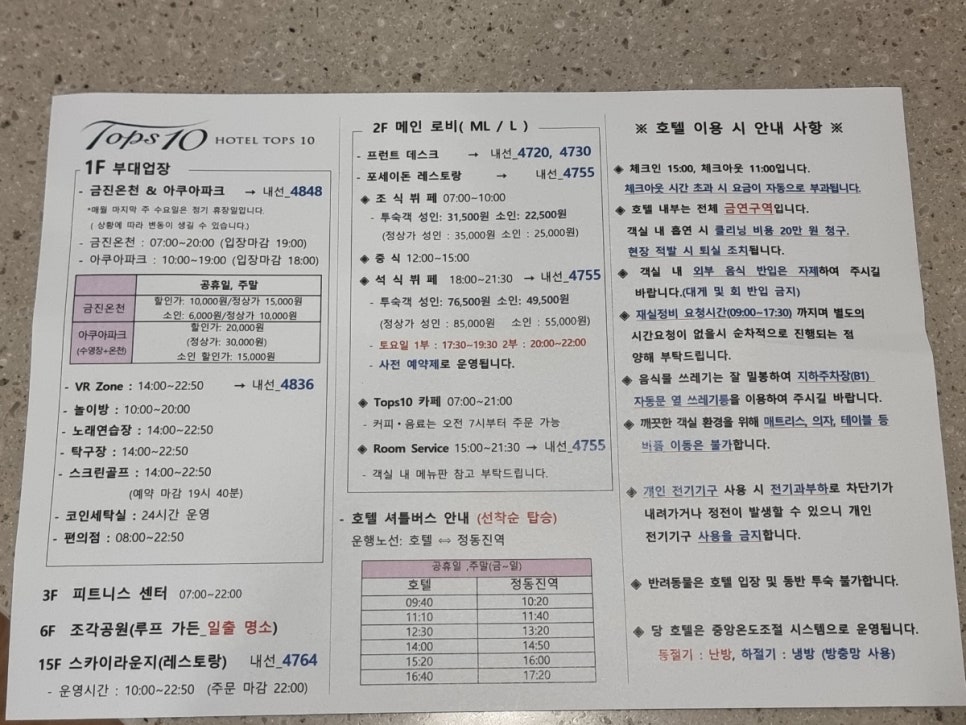 Tops 10 HOTEL TOPS 10
1F 부대업장
- 금진온천 & 아쿠아파크 → 내선_4848
*매월 마지막 주 수요일은 정기 휴장일입니다.
( 상황에 따라 변동이 생길 수 있습니다.)
- 금진온천 : 07:00~20:00 (입장마감 19:00)
- 아쿠아파크 : 10:00~19:00 (입장마감 18:00)
공휴일, 주말
금진온천
할인가: 10,000원/정상가 15,000원
소인: 6,000원/정상가 10,000원
아쿠아파크
(수영장+온천)
할인가: 20,000원
(정상가: 30,000원)
소인 할인가: 15,000원
- VR Zone : 14:00~22:50 → 내선_4836
- 놀이방 : 10:00~20:00
- 노래연습장 : 14:00~22:50
- 탁구장 : 14:00~22:50
- 스크린골프 : 14:00~22:50
(예약 마감 19시 40분)
- 코인세탁실 : 24시간 운영
- 편의점 : 08:00~22:50
3F 피트니스 센터 07:00~22:00
6F 조각공원(루프 가든_일출 명소)
15F 스카이라운지(레스토랑) 내선_4764
- 운영시간 : 10:00~22:50 (주문 마감 22:00)
2F 메인 로비( ML / L )
- 프런트 데스크 → 내선_4720, 4730
- 포세이돈 레스토랑 → 내선_4755
◈ 조 식 뷔 페 07:00~10:00
- 투숙객 성인: 31,500원 소인: 22,500원
(정상가 성인 : 35,000원 소인 : 25,000원)
◈ 중 식 12:00~15:00
◈ 석 식 뷔 페 18:00~21:30 → 내선_4755
- 투숙객 성인: 76,500원 소인: 49,500원
(정상가 성인 : 85,000원 소인 : 55,000원)
- 토요일 1부 : 17:30~19:30 2부 : 20:00~22:00
- 사전 예약제로 운영됩니다.
◈ Tops10 카페 07:00~21:00
- 커피・음료는 오전 7시부터 주문 가능
◈ Room Service 15:00~21:30 → 내선_4755
- 객실 내 메뉴판 참고 부탁드립니다.
- 호텔 셔틀버스 안내 (선착순 탑승)
운행노선: 호텔 ⇔ 정동진역
공휴일 ,주말(금~일)
호텔 정동진역
09:40 10:20
11:10 11:40
12:30 13:20
14:00 14:50
15:20 16:00
16:40 17:20
※ 호텔 이용 시 안내 사항 ※
◈ 체크인 15:00, 체크아웃 11:00입니다.
체크아웃 시간 초과 시 요금이 자동으로 부과됩니다.
◈ 호텔 내부는 전체 금연구역입니다.
객실 내 흡연 시 클리닝 비용 20만 원 청구.
현장 적발 시 퇴실 조치됩니다.
◈ 객실 내 외부 음식 반입은 자제하여 주시길
바랍니다.(대게 및 회 반입 금지)
◈ 재실정비 요청시간(09:00~17:30) 까지며 별도의
시간요청이 없을시 순차적으로 진행되는 점
양해 부탁드립니다.
◈ 음식물 쓰레기는 잘 밀봉하여 지하주차장(B1)
자동문 옆 쓰레기통을 이용하여 주시길 바랍니다.
◈ 깨끗한 객실 환경을 위해 매트리스, 의자, 테이블 등
비품 이동은 불가합니다.
◈ 개인 전기기구 사용 시 전기과부하로 차단기가
내려가거나 정전이 발생할 수 있으니 개인
전기기구 사용을 금지합니다.
◈ 반려동물은 호텔 입장 및 동반 투숙 불가합니다.
◈ 당 호텔은 중앙온도조절 시스템으로 운영됩니다.
동절기 : 난방, 하절기 : 냉방 (방충망 사용)